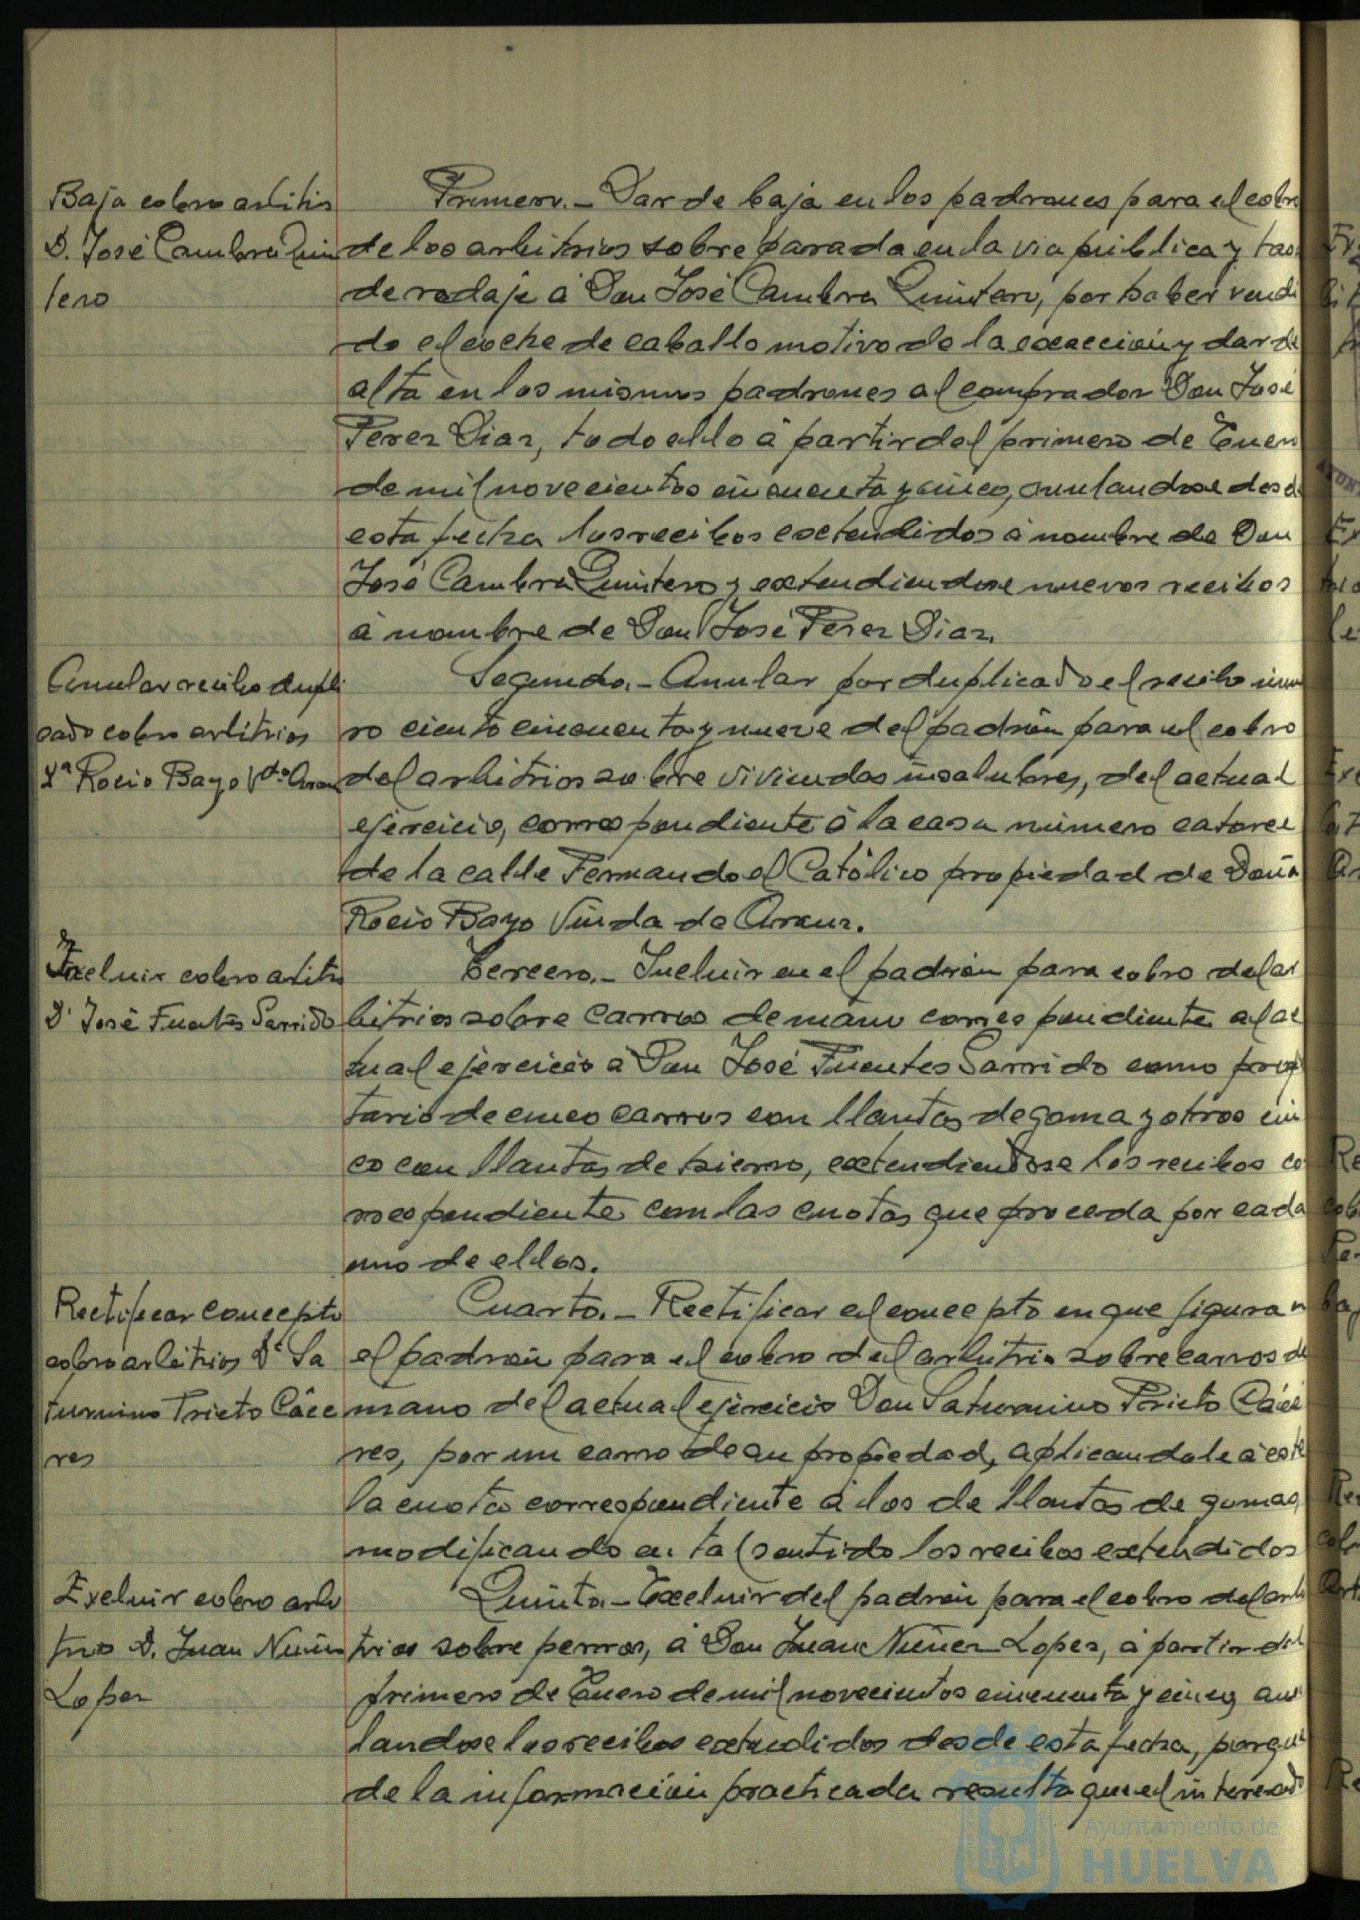 Baja cobro arbitrios
D. José Cambra Quin
tero
Primero.- Dar de baja en los padrones para el cobro
de los arbitrios sobre parada en la via pública y tasa
de rodaje á Don José Cambra Quintero, por haber vendi
do el coche de caballo motivo de la exacción y dar de
alta en los mismos padrones al comprador Don José
Perez Diaz, todo ello á partir del primero de Enero
de mil novecientos cincuenta y cinco, anulandose desde
esta fecha los recibos extendidos á nombre de Don
José Cambra Quintero y extendiendose nuevos recibos
á nombre de Don José Perez Diaz.
Anular recibo dupli
cado cobro arbitrios
Dª Rocio Bayo Vda
Segundo.- Anular por duplicado el recibo núme
ro ciento cincuenta y nueve del padrón para el cobro
del arbitrios sobre viviendas insalubres, del actual
ejercicio, correspondiente á la casa número catorce
de la calle Fernando el Católico propiedad de Doña
Rocio Bayo Viuda de Arauz.
Incluir cobro arbitrio
D. José Fuentes Garrido
Tercero.- Incluir en el padrón para cobro del ar
bitrios sobre carros de mano correspondiente al ac
tual ejercicio á Don José Fuentes Garrido como propie
tario de cinco carros con llantas de goma y otros cin
co con llantas de hierro, extendiendose los recibos co
rrespondiente con las cuotas que proceda por cada
uno de ellos.
Rectificar concepto
cobro arbitrios D. Sa
turnino Prieto Cáce
res
Cuarto.- Rectificar el concepto en que figura en
el padrón para el cobro del arbitrio sobre carros de
mano del actual ejercicio Don Saturnino Prieto Cáce
res, por un carro de su propiedad, aplicandole á este
la cuota correspondiente á los de llantas de gomas,
modificando en tal sentido los recibos extendidos
Excluir cobro arbi
trio D. Juan Nuñez
Lopez
Quinto.- Excluir del padrón para el cobro del arbi
trios sobre perros, á Don Juan Nuñez Lopez, á partir del
primero de Enero de mil novecientos cincuenta y cinco, anu
landose los recibos extendidos desde esta fecha, porque
de la información practicada resulta que el interesado
Ayuntamiento de
HUELVA